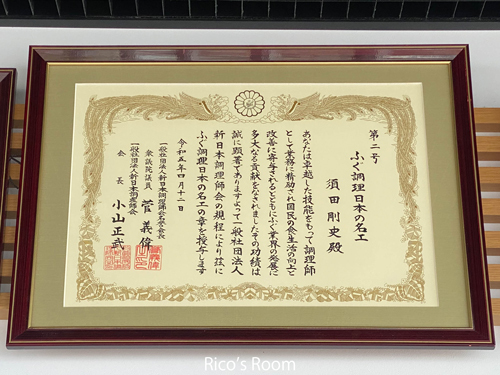 第二号
ふぐ調理日本の名工
須田剛史殿
あなたは卓越した技能をもって調理師
として業務に精励され国民の食生活の向上と
改善に寄与されるとともにふぐ業界の発展に
多大なる貢献をなされましたその功績は
誠に顕著でありますよって一般社団法人
新日本調理師会の規程により茲に
ふぐ調理日本の名工の章を授与します
令和五年四月十二日
一般社団法人新日本調理師会名誉会長
衆議院議員 菅義偉
一般社団法人新日本調理師会
会長 小山正武
Rico's Room